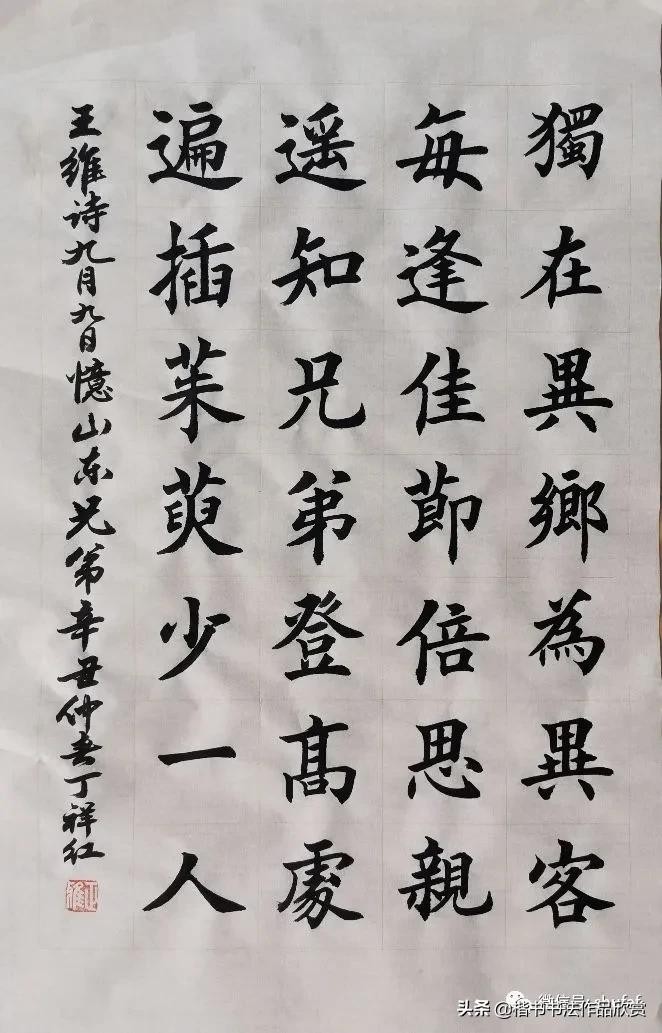 獨在異鄉為異客
每逢佳節倍思親
遥知兄弟登髙處
遍插茱萸少一人
王維诗九月九日憶山东兄弟辛丑仲春丁祥红
头条 @楷书书法作品欣赏